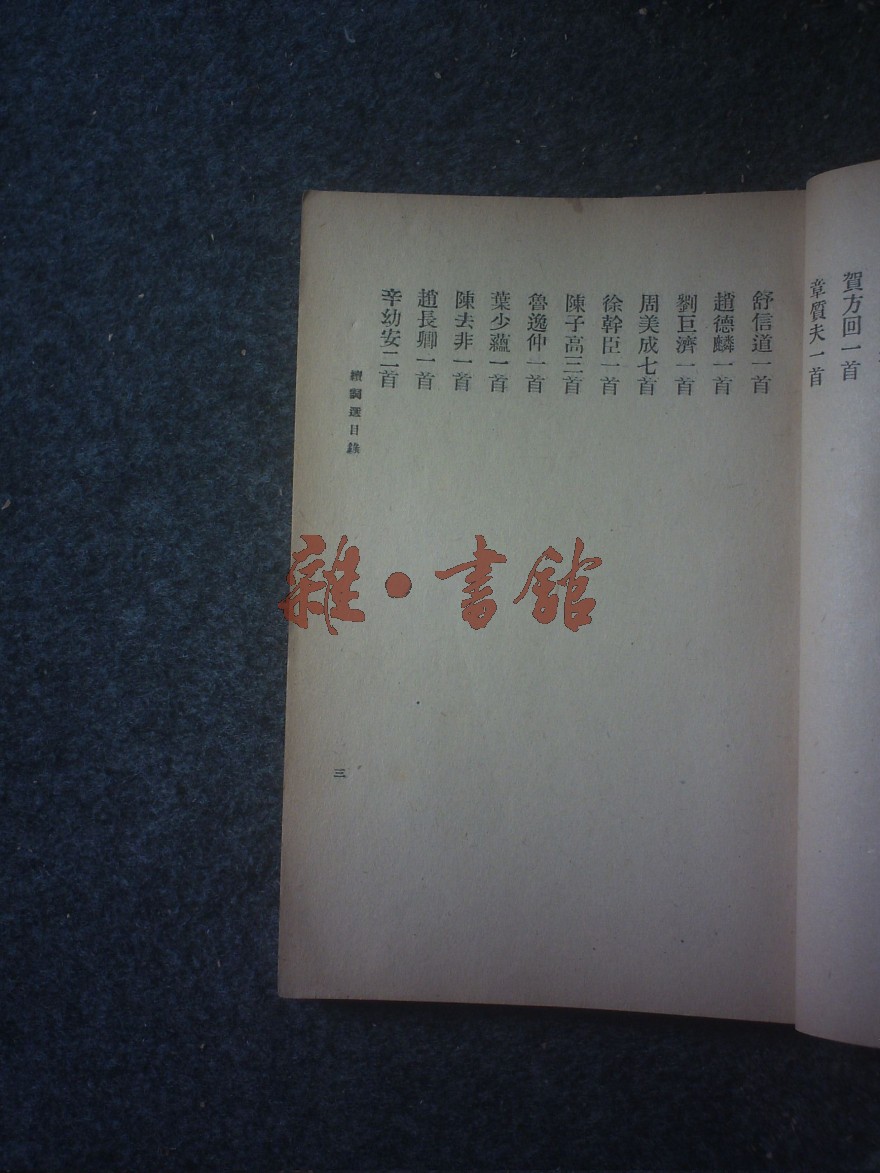 賀方回一首
章質夫一首
舒信道一首
趙德麟一首
劉巨濟一首
周美成七首
徐幹臣一首
陳子高三首
魯逸仲一首
葉少蘊一首
陳去非一首
趙長卿一首
辛幼安二首
續詞選目錄
三
雜·書館